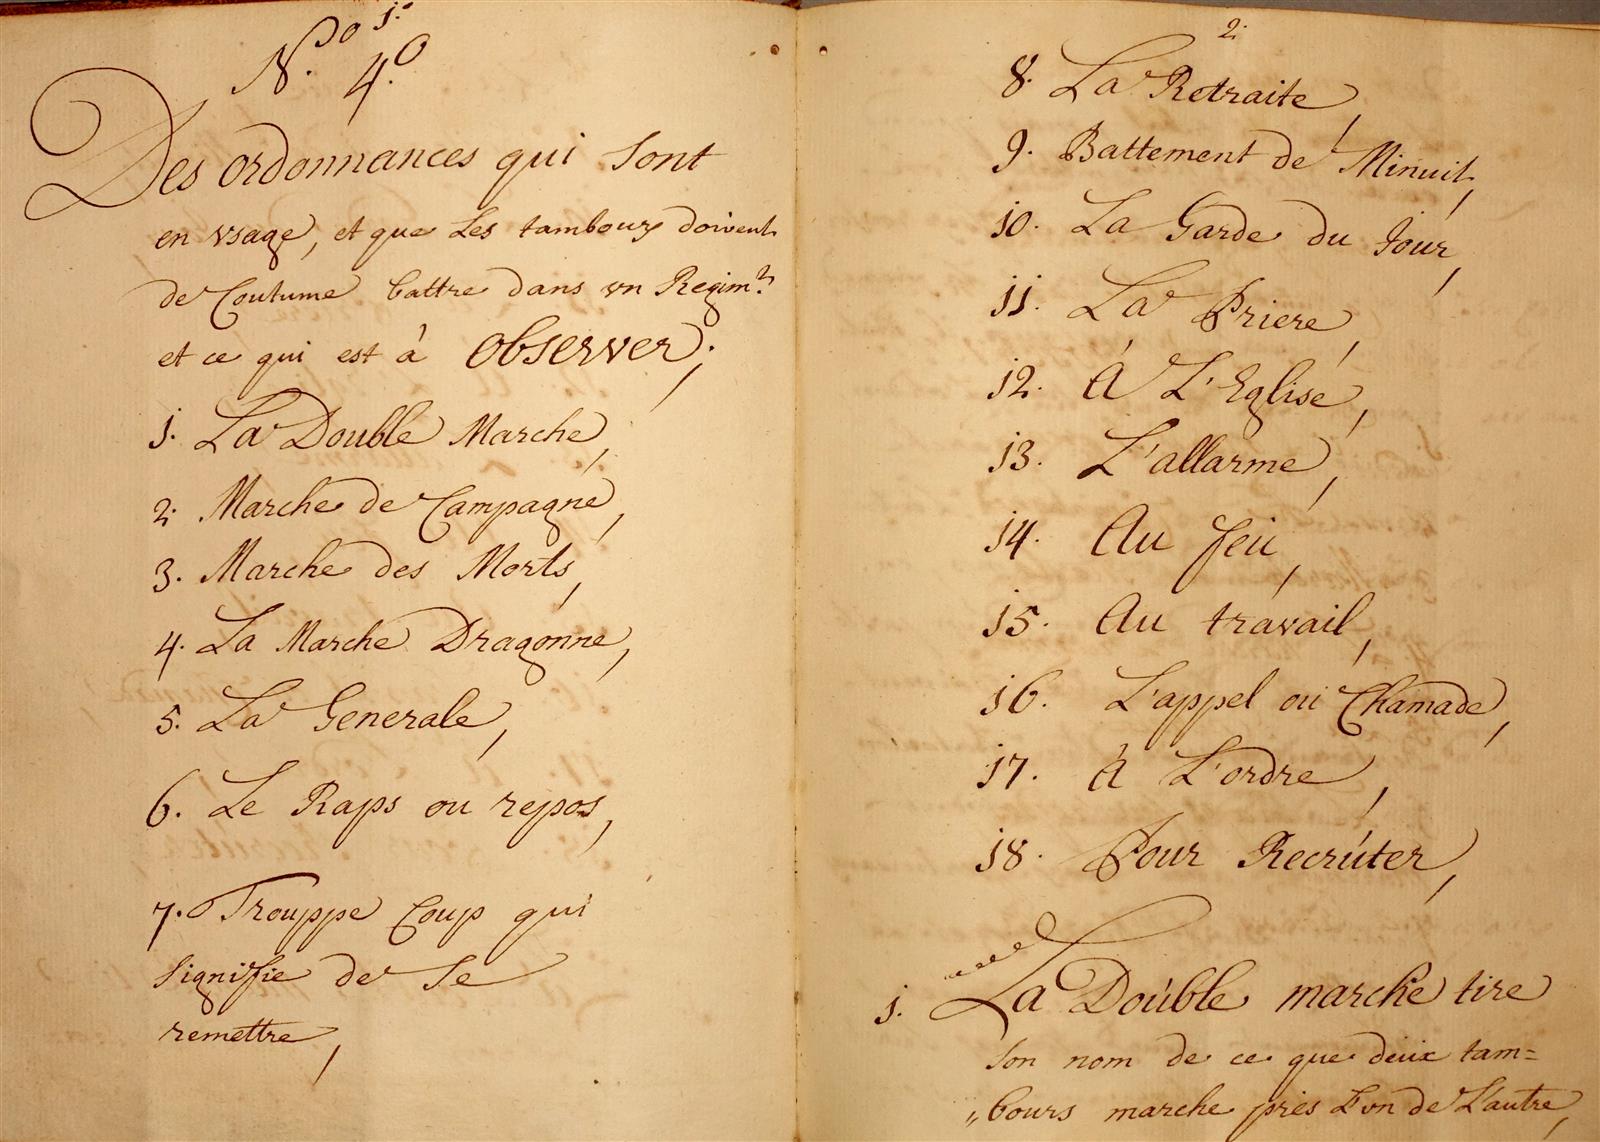 N.º 1.
4.º
Des ordonnances qui sont
en vsage, et que Les tambours doivent
de Coutume battre dans vn Regim.t
et ce qui est à Observer;
1. La Double Marche,
2. Marche de Campagne,
3. Marche des Morts,
4. La Marche Dragonne,
5. La Generale,
6. Le Raps ou repos,
7. Trouppe Coup qui
signifie de se
remettre,
2.
8. La Retraite,
9. Battement de Minuit,
10. La Garde du Jour,
11. La Priere,
12. À L'Eglise,
13. L'allarme,
14. Au feu,
15. Au travail,
16. L'appel ou Chamade,
17. À L'ordre,
18. Pour Recruter,
1. La Double marche tire
son nom de ce que deux tam=
„bours marche près L'vn de L'autre,